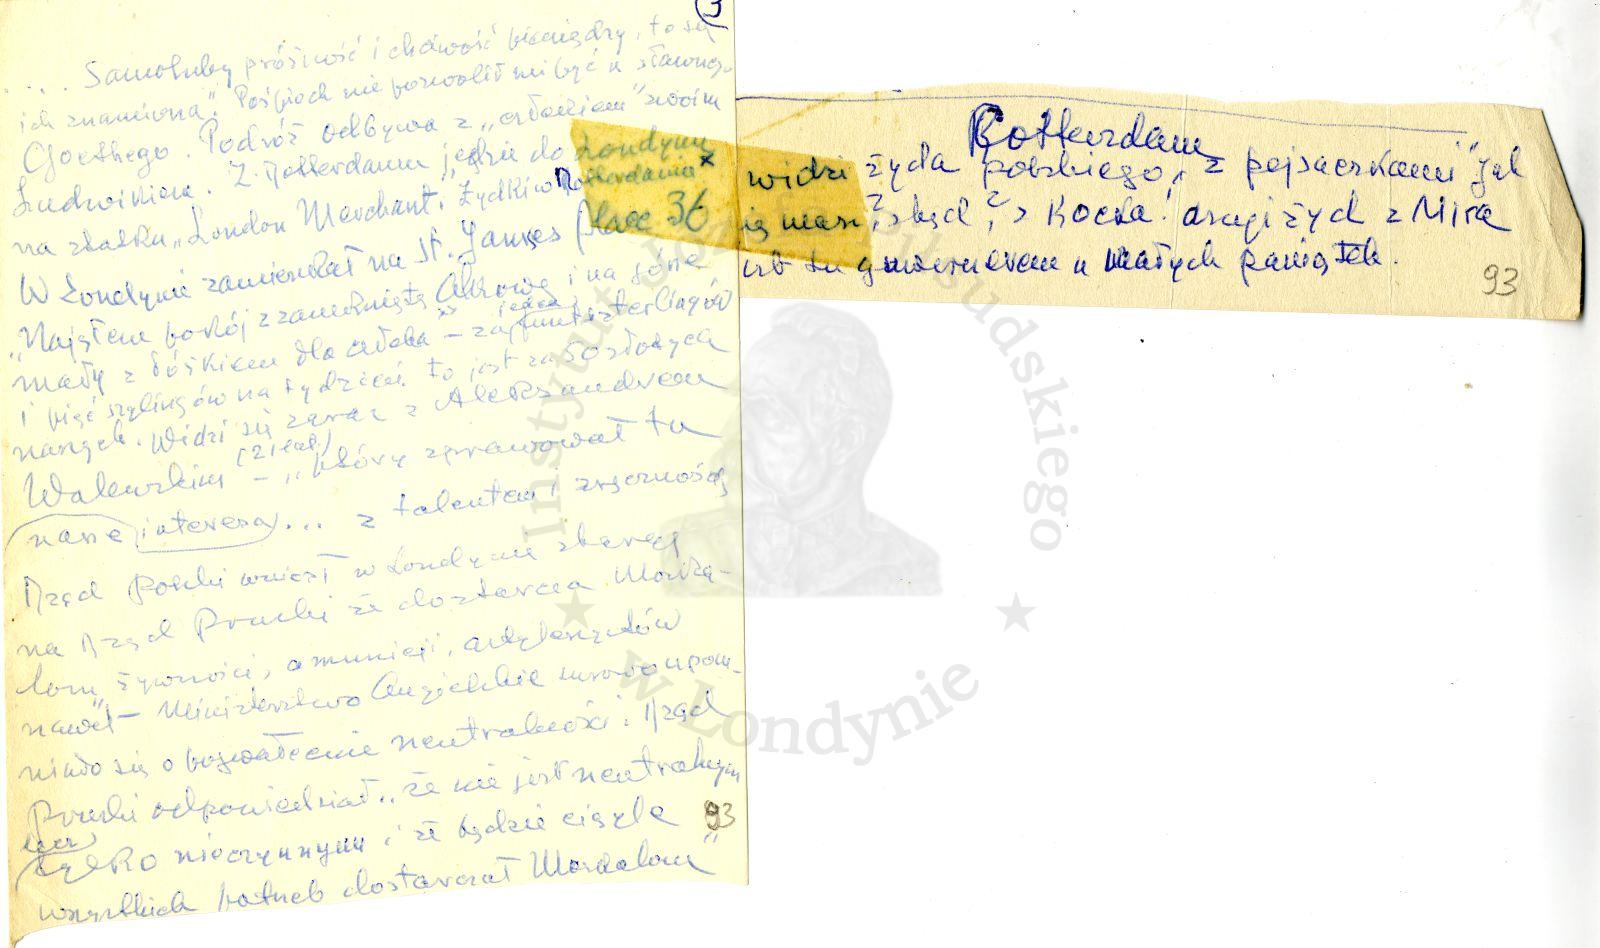 3
.... Samoluby próżność i chciwość pieniędzy, to są
ich znamiona". Pośpiech nie pozwolił mi być u sławnego
Goethego. Podróż odbywa z „człowiekiem" swoim
Ludwikiem. Z Rotterdamu jedzie do Londynu
na statku „London Merchant". Żydków Rotterdamie x
W Londynie zamieszkał na St. James Place 36
„Nająłem pokój z zamkniętą alkową i na górze
mały z łóżkiem dla człeka – za jeden funt szterlingów
i pięć szylingów na tydzień. to jest za 50 złotych
naszych. Widzi się zaraz z Aleksandrem
Walewskim (21 lat) – „który sprawował tu
nasze interesa ... z talentem i zręcznością
Rząd Polski wniósł w Londynie skargę
na Rząd Pruski że dostarcza Moska-
lom „żywności, amunicji, artylerzystów
nawet – Ministerstwo Angielskie surowo upom-
niało się o pogwałcenie neutralności. Rząd
Pruski odpowiedział „że nie jest neutralnym
lecz
tylko nieczynnym i że będzie ciągle
wszystkich potrzeb dostarczał Moskalom"
93
Rotterdam
widzi żyda polskiego „z pejsaczkami" jak
się masz, skąd? z Kocka! drugi żyd z Mira
był tu guwernerem u małych paniątek.
93
Instytut Józefa Piłsudskiego
w Londynie